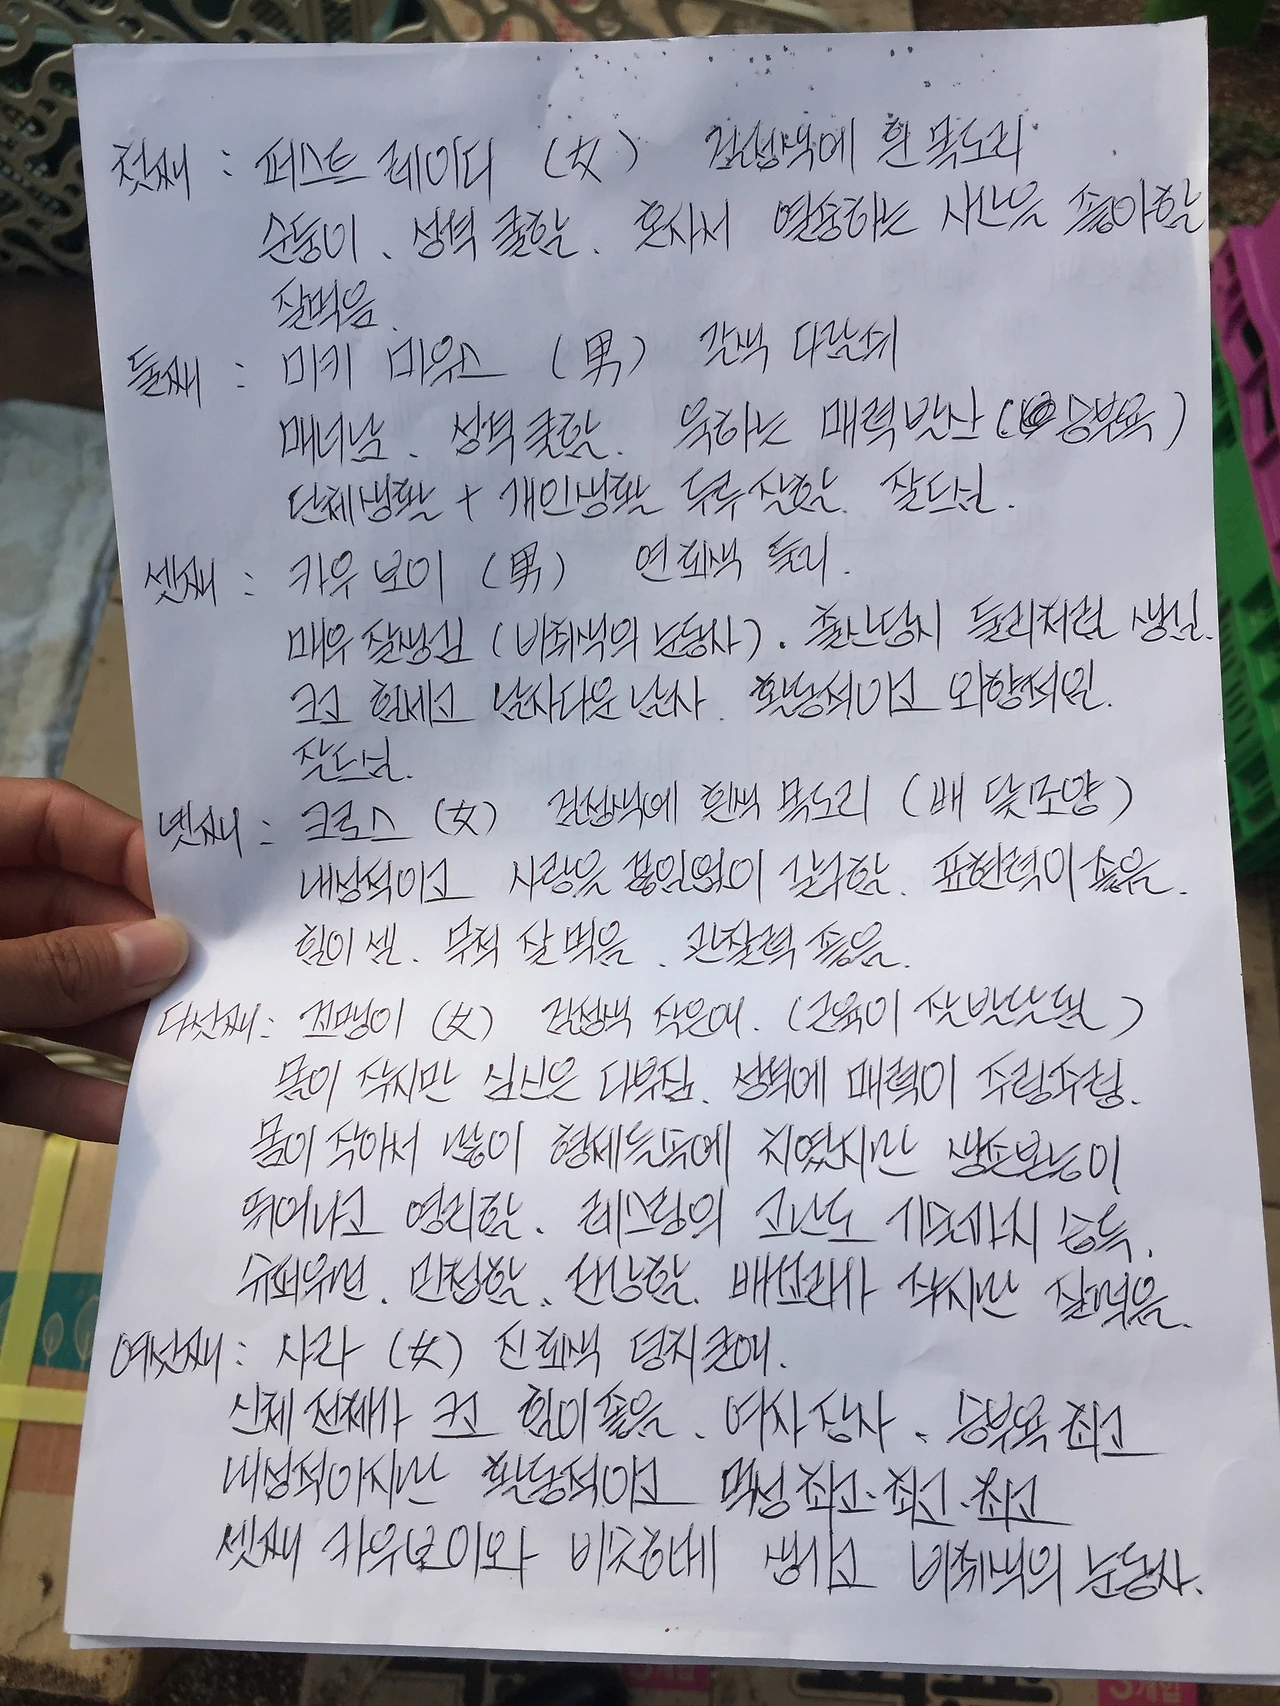 첫째 : 퍼스트 레이디 (女) 검정색에 흰 목도리
순둥이. 성격 쿨함. 혼자서 열중하는 시간을 좋아함
잘먹음.
둘째 : 미키 마우스 (男) 갈색 다람쥐
매너남. 성격쿨함. 욱하는 매력발산 (승부욕)
단체생활 + 개인생활 두루 잘함. 잘드심.
셋째 : 카우보이 (男) 연회색 둘리.
매우 잘생김 (비취색의 눈동자). 출산당시 둘리처럼 생김.
크고 힘세고 남자다운 남자. 활동적이고 외향적임.
잘드심.
넷째 : 크로스 (女) 검정색에 흰색 목도리 (배 닻모양)
내성적이고 사랑을 끊임없이 갈구함. 표현력이 좋음.
힘이 셈. 무척 잘 먹음. 관찰력 좋음.
다섯째 : 꼬맹이 (女) 검정색 작은애. (근육이 잘 발달됨)
몸이 작지만 심신은 다부짐. 성격에 매력이 수렁수렁.
몸이 작아서 많이 형제들속에 치였지만 생존본능이
뛰어나고 영리함. 레스링의 고난도 기술까지 습득.
슈퍼우먼. 민첩함. 선량함. 배꼴래가 작지만 잘먹음.
여섯째 : 사라 (女) 진회색 덩치큰애.
신체 전체가 크고 힘이좋음. 여자장사. 승부욕 최고
내성적이지만 활동적이고 먹성 최고. 최고. 최고
셋째 카우보이와 비슷하게 생기고 비취색의 눈동자.